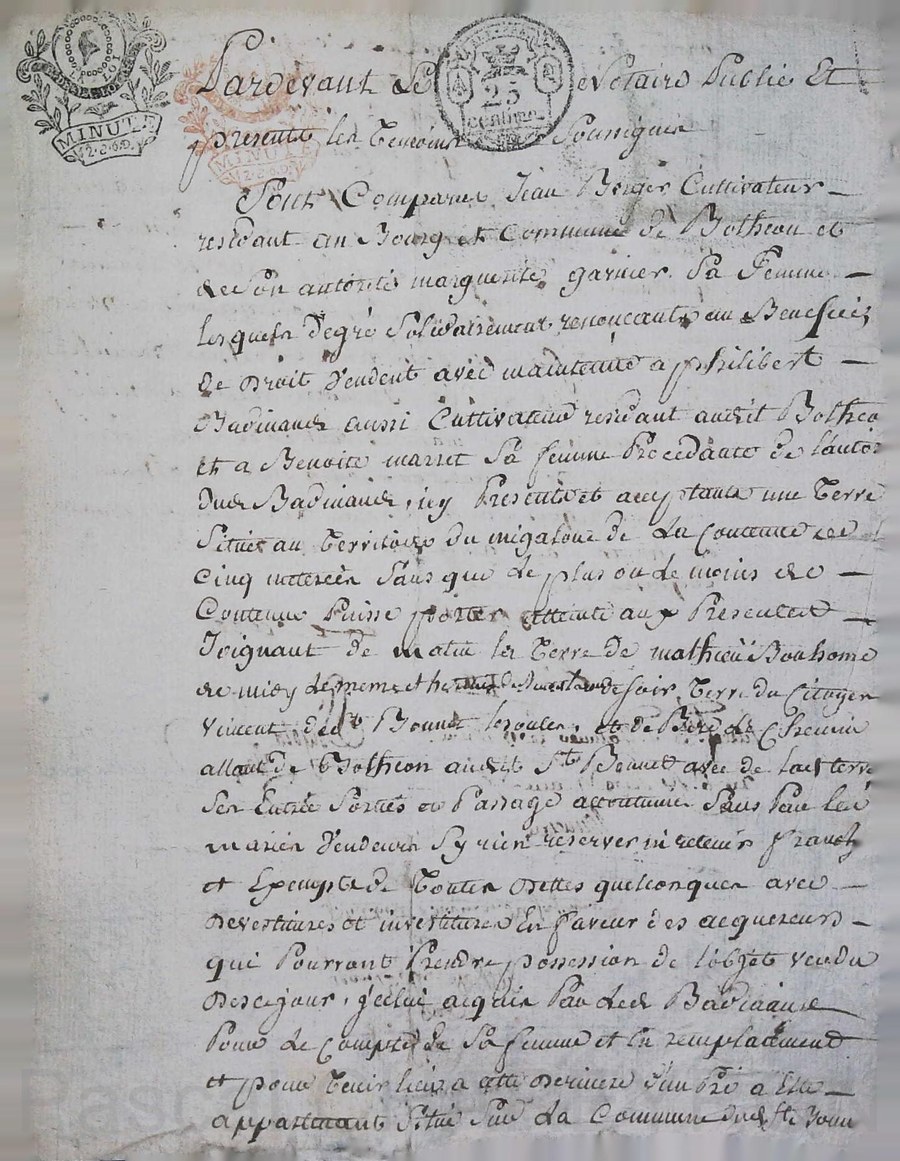 MINUTE
25
centimes
MINUTE
Pardevant Le Notaire Public Et
presents les temoins Soussignés
Sont Comparus Jean Berger Cultivateur
residant au Bourg et Commune de Botheon et
de son autorité marguerite garnier Sa Femme
lesquels degré Solidairement renonceants au Benefice
de Droit vendent avec maintenue a philibert
Badinand aussi Cultivateur residant audit Botheo
et a Benoite marset Sa femme Procedante de l'autor
dud Badinand, icy Presents et acceptants une Terre
Situee au Territoire du migaloue de La Contenue de
Cinq meterées Sans que le plus ou le moins de
Contenue Puisse porter atteinte aux Presentes
Joignant de matin la Terre de mathieu Bonhome
de midy de meme et soir Terre du Citoyen
Vincent de St Bonnet et de Bize le Chemin
allant de Botheon audit St Bonnet avec de lad terre
Ses Entrée Sorties et Passage accoutumés Sans Par les
mariés Vendeurs S'y rien reserver ni retenir franche
et Exempte de Toutes Dettes quelconques avec
Devestitures et investitures En faveur des acquereurs
qui Pourront Prendre possession de l'objet vendu
Des ce jour, icelui acquis Par led Badinand
Pour le Compte de Sa femme et En remplacement
et pour Tenir lieu a cette Derniere d'un Pré a Elle
appartenant Situé Sur La Commune dud St Bonn